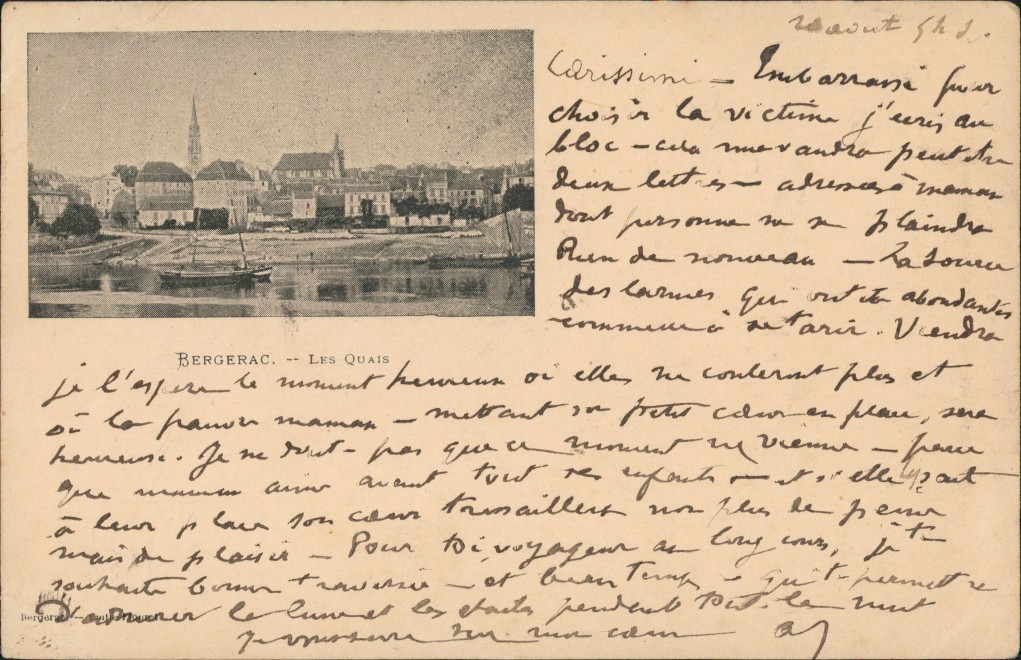 août 5h s.
Carissimi – Embarrassé pour
choisir la victime j'écris au
bloc – cela me vaudra peut être
deux lettres – adressées à maman
dont personne ne se plaindra
Rien de nouveau – La source
des larmes qui ont été abondantes
commence à se tarir. Viendra
BERGERAC. -- LES QUAIS
je l'espère le moment heureux où elles ne couleront plus et
où la pauvre maman – mettant son petit cœur en place, sera
heureuse. Je ne doute pas que ce moment ne vienne – parce
que maman aime avant tout ses enfants – et si elle met
à leur place son cœur tressaillera non plus de peine
mais de plaisir – Pour toi voyageur au long cours, je te
souhaite bonne traversée – et beau temps – qui te permette
d'admirer la lune et les étoiles pendant toute la nuit
Bergerac. –
Je vous serre sur mon cœur